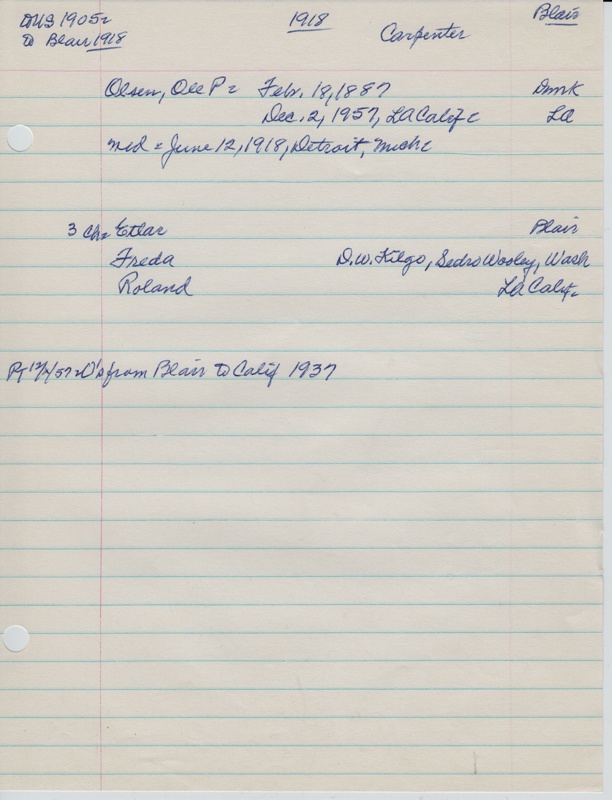 TUS 1905 1918 Blair
to Blair 1918 Carpenter
Olsen, Ole P = Febr. 18, 1887 Dmk
Dec. 2, 1957, LA Calif LA
Mrd = June 12, 1918, Detroit, Mich
3 Ch = Etlar Blair
Freda D.W. Kilgo, Sedro Wooley, Wash
Roland LA Calif
PT 12/ /57 = O's from Blair to Calif 1937